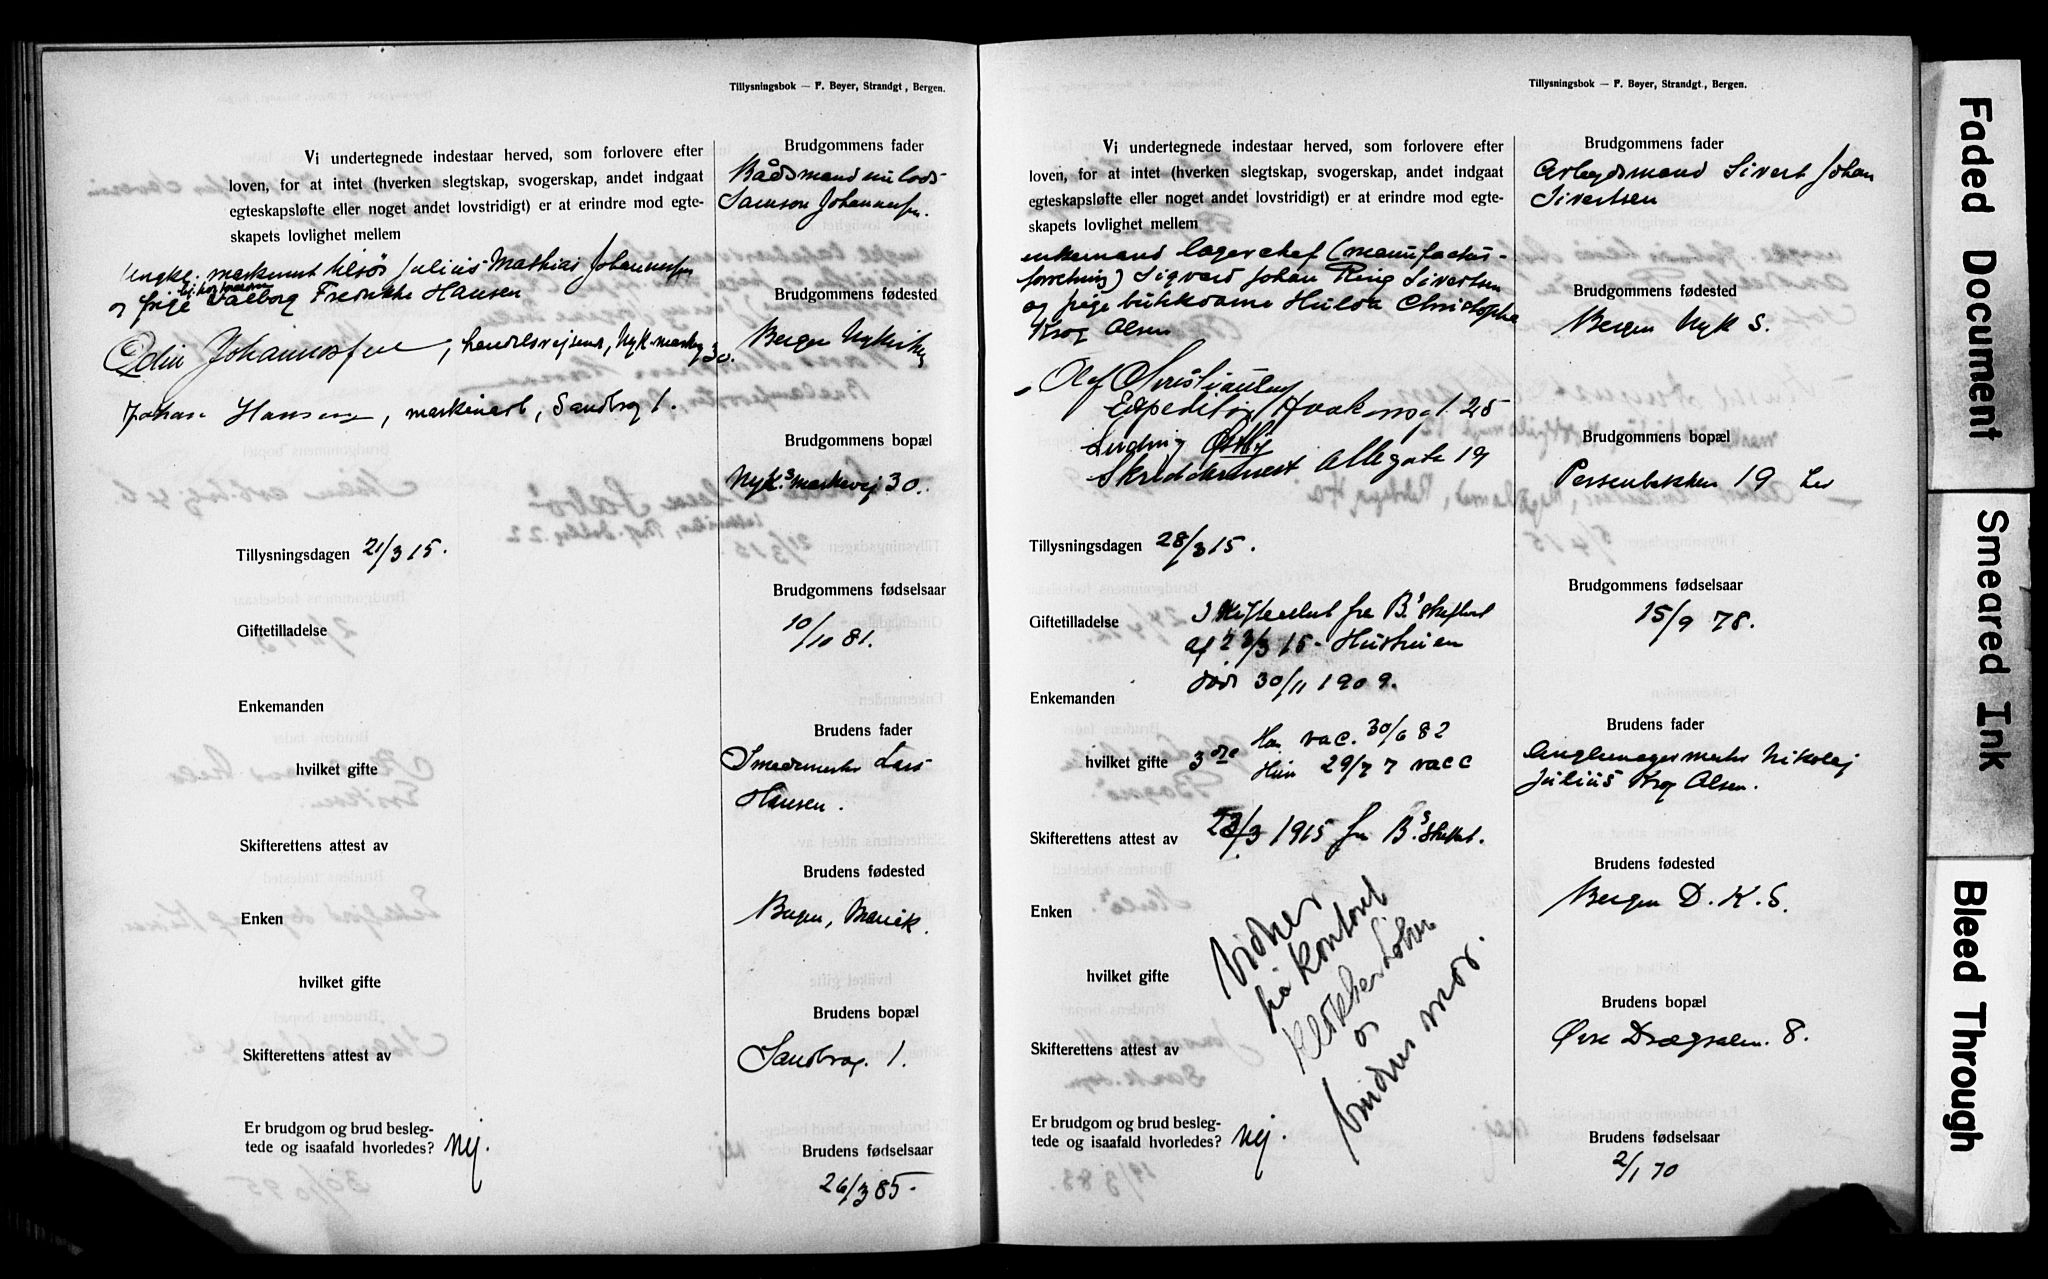 Tillysningsbok — F. Beyer, Strandgt., Bergen.
Vi undertegnede indestaar herved, som forlovere efter
loven, for at intet (hverken slegtskap, svogerskap, andet indgaat
egteskapsløfte eller noget andet lovstridigt) er at erindre mod egte-
skapets lovlighet mellem
ungkl. Julius Mathias Johannessen
og pige Valborg Fredrikke Hansen
Odin Johannessen, handelsreisende, Nyk.markev 30.
Johan Hansen, maskinarb, Sandbrog 1.
Tillysningsdagen 21/3 15.
Giftetilladelse
Enkemanden
hvilket gifte
Skifterettens attest av
Enken
hvilket gifte
Skifterettens attest av
Er brudgom og brud besleg-
tede og isaafald hvorledes? Nej.
Brudgommens fader
Bådsmand
Samson Johannessen.
Brudgommens fødested
Bergen Nykirke
Brudgommens bopæl
Nyk.s markevej 30.
Brudgommens fødselsaar
10/10 81.
Brudens fader
Smedmester Lars
Hansen.
Brudens fødested
Bergen,
Brudens bopæl
Sandbrog. 1.
Brudens fødselsaar
26/3 85.
Tillysningsbok — F. Beyer, Strandgt., Bergen.
Vi undertegnede indestaar herved, som forlovere efter
loven, for at intet (hverken slegtskap, svogerskap, andet indgaat
egteskapsløfte eller noget andet lovstridigt) er at erindre mod egte-
skapets lovlighet mellem
enkemand lagerchef (manufactur-
forretning) Sigvard Johan Ring Sivertsen
og pige butikdame Hulda Christopha
Krog Olsen
Olaf Christiansen
Expeditør, Haakonsg. 25
Ludvig Østby
Skreddermest Allegate 19
Tillysningsdagen 28/3 15.
Giftetilladelse Skifteattest fra B.s skifteret
af 23/3 15. Hustruen
død 30/11 1909.
Enkemanden
hvilket gifte 3die Han vac. 30/6 82
Hun 29/7 7 vacc
Skifterettens attest av 23/3 1915 fra B.s Skifteret.
Enken
hvilket gifte
Skifterettens attest av
Vidner
på kontoret
Klokker
og
brudens mor.
Er brudgom og brud besleg-
tede og isaafald hvorledes? Nej.
Brudgommens fader
Arbeidsmand Sivert Johan
Sivertsen
Brudgommens fødested
Bergen Nyk S.
Brudgommens bopæl
Persenbakken 19
Brudgommens fødselsaar
15/9 78.
Brudens fader
Nikolej
Julius Krog Olsen.
Brudens fødested
Bergen D. K. S.
Brudens bopæl
Øvre Drægsalm. 8.
Brudens fødselsaar
2/1 70
Faded Document
Smeared Ink
Bleed Through